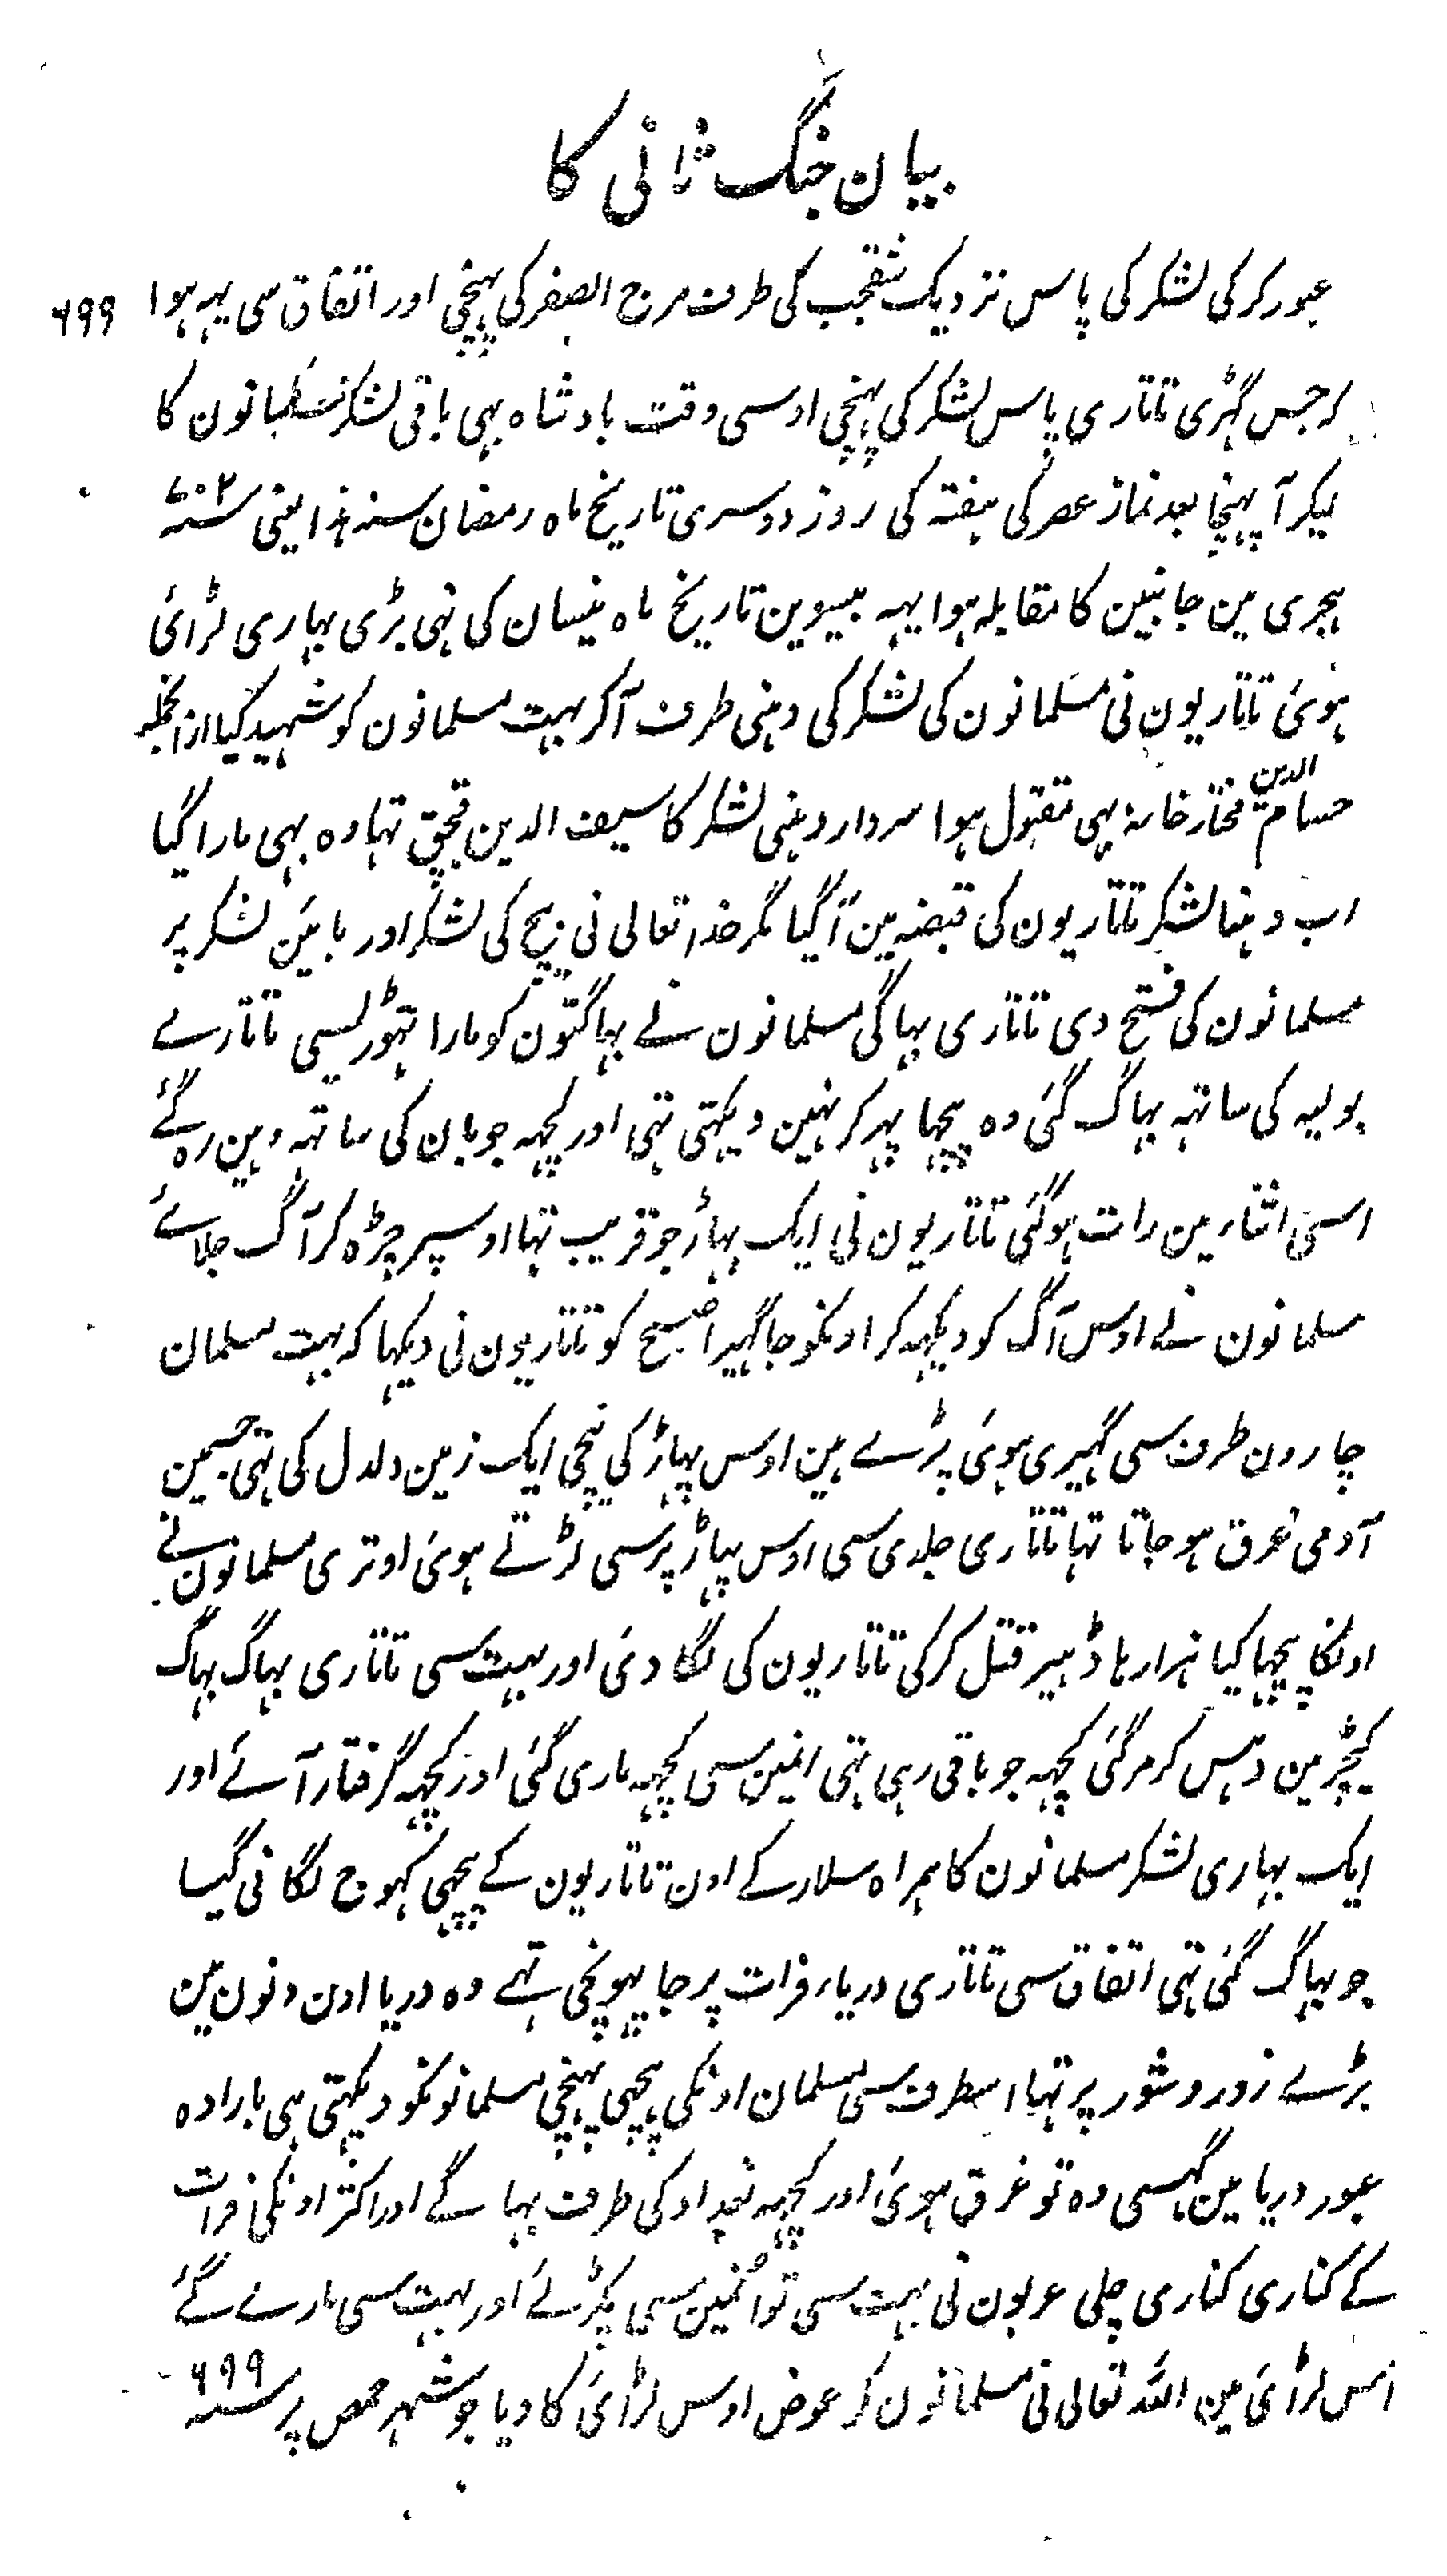 بیان جنگ ثانی کا
عبور کر کی لشکر کی پاس نزدیک شقجب کی طرف مرج الصفر کی پہنچی اور اتفاق سی یہہ ہوا ۶۹۹
کہ جس گہڑی تاتاری پاس لشکر کی پہنچی اوسی وقت بادشاہ بہی باقی لشکر مسلمانون کا
لیکر آ پہنچا بعد نماز عصر کی ہفتہ کی روز دوسری تاریخ ماہ رمضان سنہ ہذا یعنی سنہ ۷۰۲
ہجری مین جانبین کا مقابلہ ہوا یہہ بیسوین تاریخ ماہ نیسان کی تہی بڑی بہاری لڑائی
ہوئی تاتاریون نی مسلمانون کی لشکر کی دہنی طرف آ کر بہت مسلمانون کو شہید کیا ازانجملہ
حسام الدین مختار خانہ بہی مقتول ہوا سردار دہنی لشکر کا سیف الدین قبجق تہا وہ بہی مارا گیا
اب دہنا لشکر تاتاریون کی قبضہ مین آ گیا مگر خدا تعالی نی بیچ کی لشکر اور بائین لشکر پر
مسلمانون کی فتح دی تاتاری بہاگی مسلمانون نے بہاگتون کو مارا تہوڑیسی تاتارے
بولیہ کی ساتہہ بہاگ گئی وہ پیچہا پہر کر نہین دیکہتی تہی اور کچہہ جوبان کی ساتہہ وہین رہ گئے
اسی اثناء مین رات ہو گئی تاتاریون نی ایک پہاڑ جو قریب تہا اوسپر چڑہ کر آگ جلائے
مسلمانون نے اوس آگ کو دیکہہ کر اونکو جا گہیرا صبح کو تاتاریون نی دیکہا کہ بہت مسلمان
چارون طرف سی گہیری ہوئی پڑے ہین اوس پہاڑ کی نیچی ایک زمین دلدل کی تہی جسمین
آدمی غرق ہو جاتا تہا تاتاری جلدی سی اوس پہاڑ پر سی لڑتے ہوئی اوتری مسلمانون نے
اونکا پیچہا کیا ہزارہا ڈہیر قتل کر کی تاتاریون کی لگا دئی اور بہت سی تاتاری بہاگ بہاگ
کیچڑ مین دہس کر مر گئی کچہہ جو باقی رہی تہی انمین سی کچہہ ماری گئی اور کچہہ گرفتار آئے اور
ایک بہاری لشکر مسلمانون کا ہمراہ سلار کے اون تاتاریون کے پیچہی کہوج لگانی گیا
جو بہاگ گئی تہی اتفاق سی تاتاری دریاء فرات پر جا پہونچی تہے وہ دریا اون دنون مین
بڑے زور و شور پر تہا اسطرف سی مسلمان اونکی پیچہی پہنچی مسلمانونکو دیکہتی ہی بارادہ
عبور دریا مین گہسی وہ تو غرق ہوئی اور کچہہ بغداد کی طرف بہاگے اور اکثر اونکی فرات
کے کناری کناری چلی عربون نی بہت سی تو انمین سی پکڑلئے اور بہت سی مارے گئے
اس لڑائی مین اللہ تعالی نی مسلمانون کو عوض اوس لڑائی کا دیا جو شہر حمص پر سنہ ۶۹۹